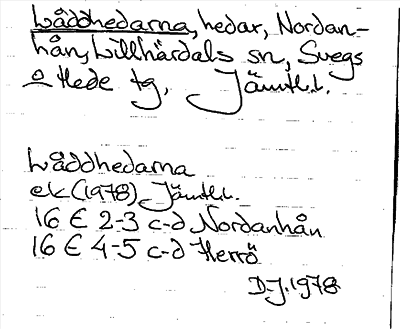 Låddhedarna, hedar, Nordan-
hån, Lillhärdals sn, Svegs
o Hede tg, Jämtl.l.
Låddhedarna
ek (1978) Jämtl.l.
16 E 2-3 c-d Nordanhån
16 E 4-5 c-d Herrö
D-J. 1978